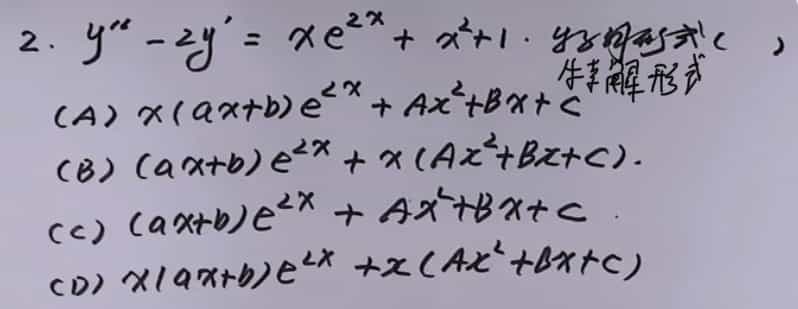 2. y'' - 2y' = xe^{2x} + x^2+1.
特解形式
( )
(A) x(ax+b)e^{2x} + Ax^2+Bx+C
(B) (ax+b)e^{2x} + x(Ax^2+Bx+C).
(C) (ax+b)e^{2x} + Ax^2+Bx+C.
(D) x(ax+b)e^{2x} + x(Ax^2+Bx+C)